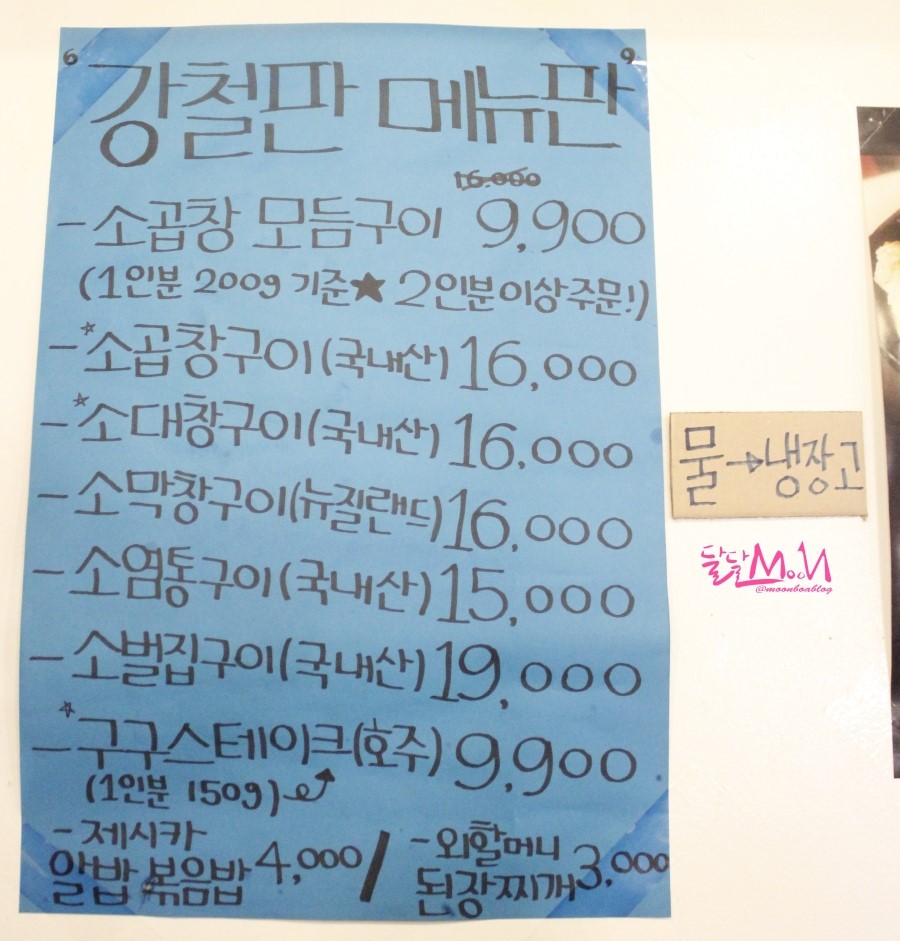 6 강철판 메뉴판 9
16.000
- 소곱창 모듬구이 9,900
(1인분 200g 기준★ 2인분이상주문!)
- ☆소곱창구이(국내산) 16,000
- ☆소대창구이(국내산) 16,000
- 소막창구이(뉴질랜드) 16,000
- 소염통구이(국내산) 15,000
- 소벌집구이(국내산) 19,000
- ☆구구스테이크(호주) 9,900
(1인분 150g)
- 제시카 알밥 볶음밥 4,000 / - 외할머니 된장찌개 3,000
물→냉장고
달달MooN
@moonboablog